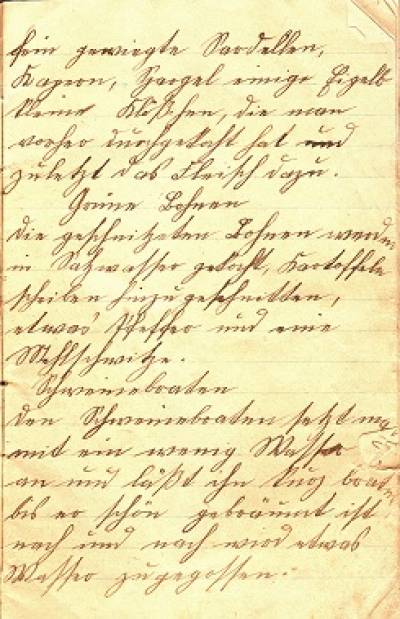 fein gewiegte Sardellen,
Kapern, Spargel einige Eigelb
kleine Klößchen, die man
vorher durchgekocht hat und
zuletzt das Fleisch dazu.
Grüne Bohnen
Die geschnitzten Bohnen werden
in Salzwasser gekocht, Kartoffeln
scheiben hinzugeschnitten,
etwas Pfeffer und eine
Mehlschwitze.
Schweinebraten
Den Schweinebraten setzt man
mit ein wenig Wasser
an und läßt ihn kurz braten
bis er schön gebräunt ist
nach und nach wird etwas
Wasser zugegossen.